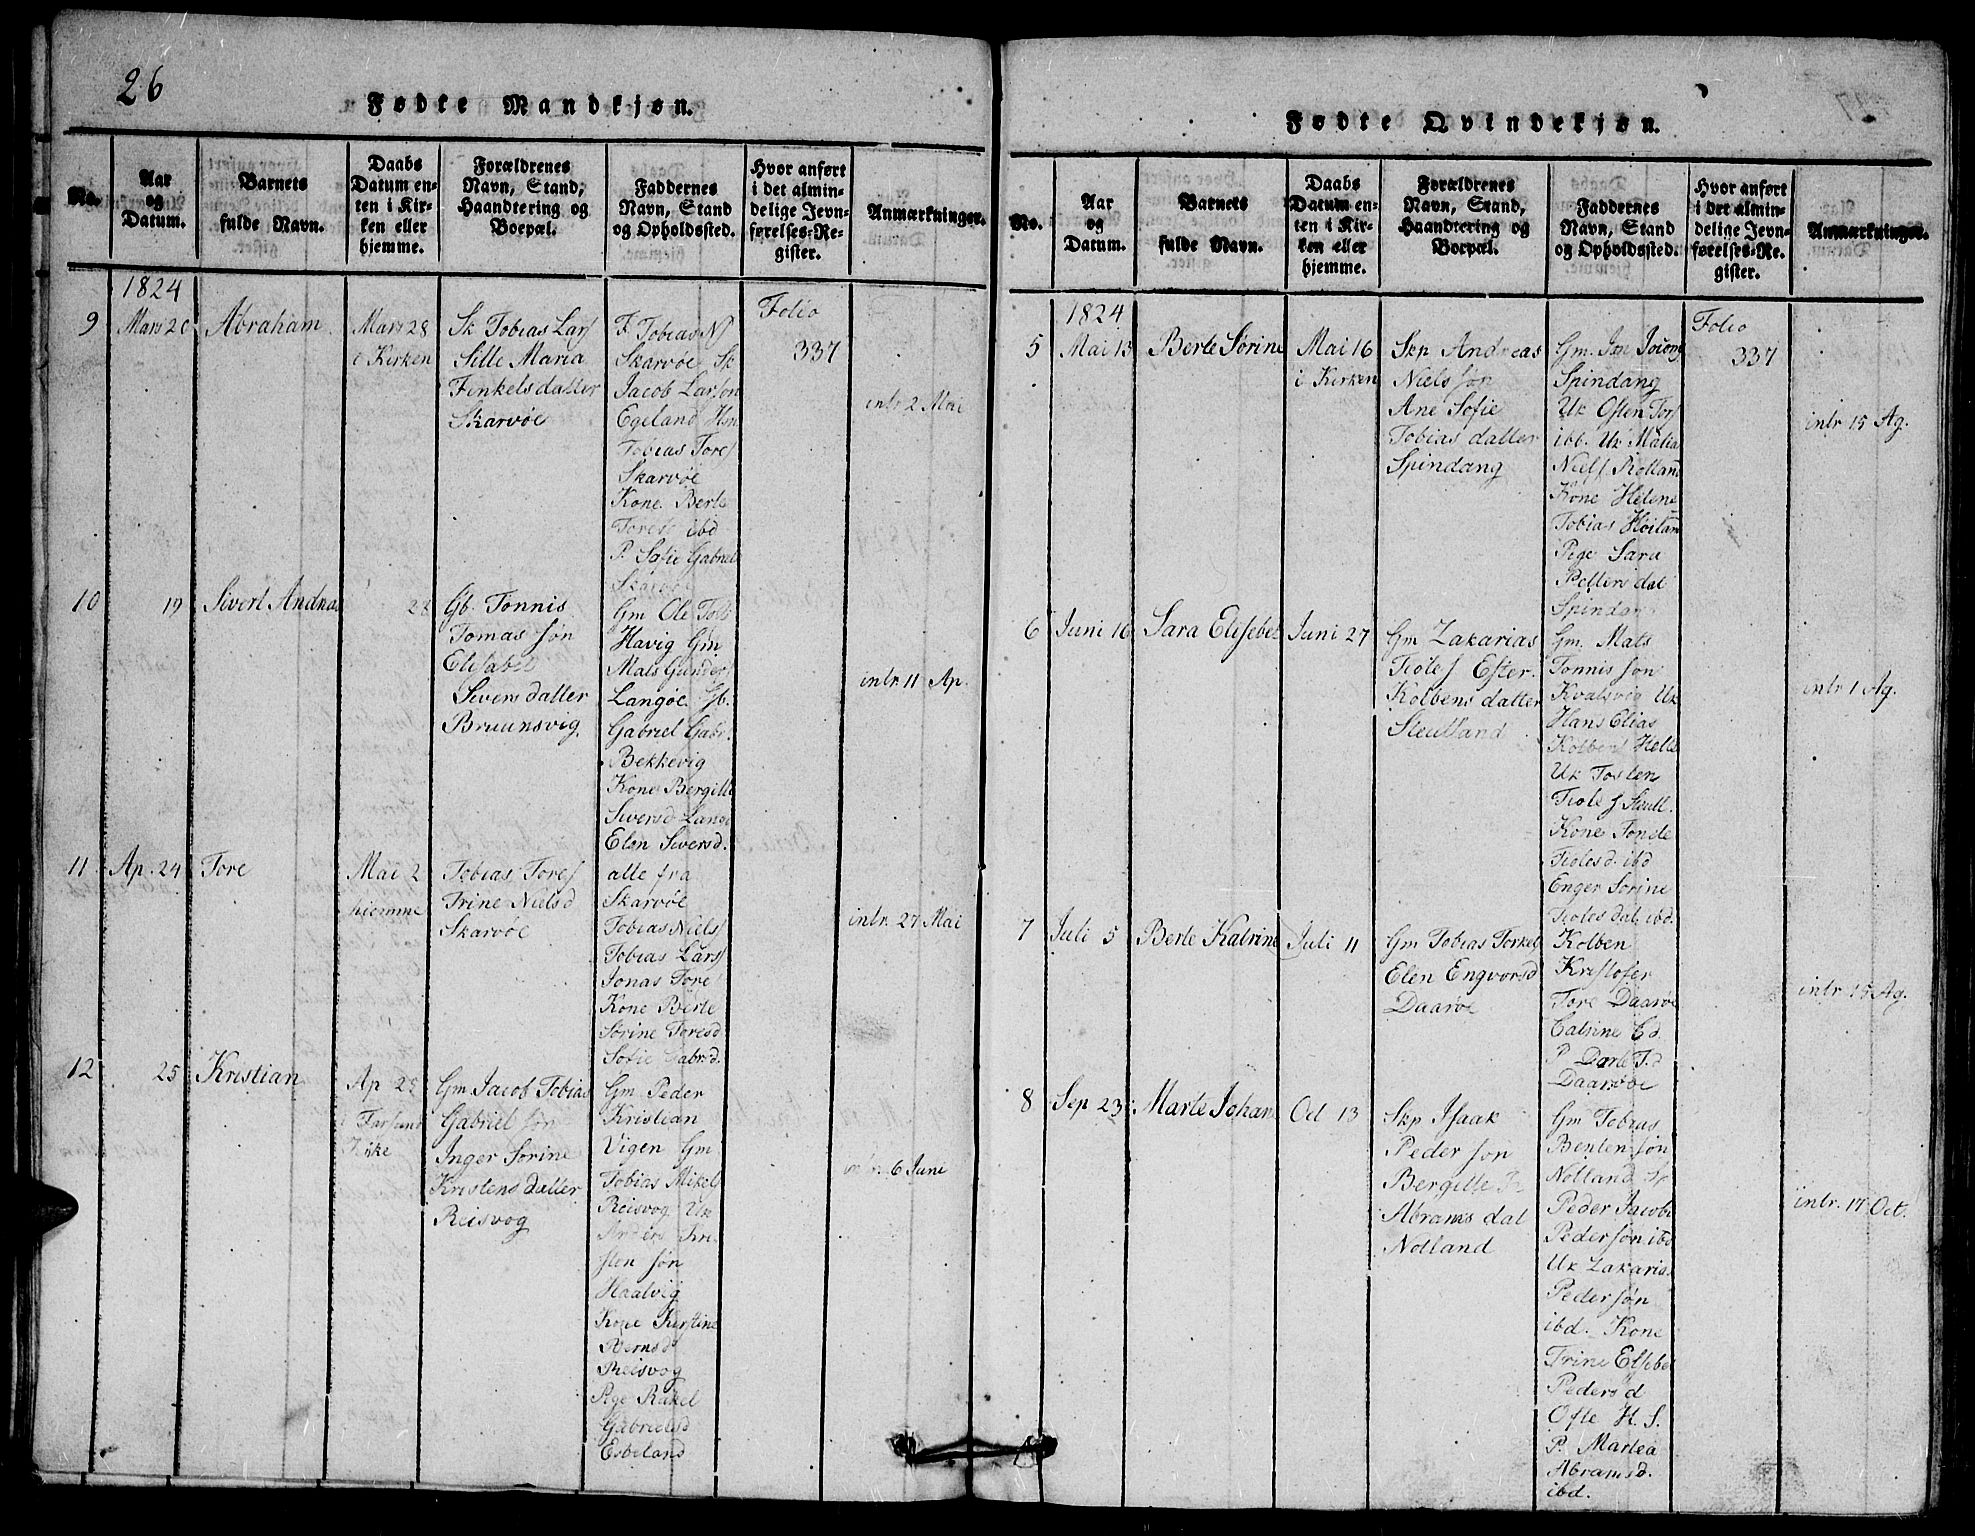 26
Fødte Mandkjøn.
No.
Aar
og
Datum.
Barnets
fulde Navn.
Daabs
Datum en-
ten i Kir-
ken eller
hjemme.
Forældrenes
Navn, Stand,
Haandtering og
Boepæl.
Faddernes
Navn, Stand
og Opholdssted.
Hvor anført
i det almin-
delige Jevn-
førelses-Re-
gister.
Anmærkninger.
1824
9
Mars 20
Abraham
Mars 28
i Kirken
Sk Tobias Lars
Sille Maria
Tenkelsdatter
Skarvøe
F. Tobias N
Skarvøe Sk
Jacob Larson
Egeland Hsn
Tobias Tores
Skarvøe
Kone Berte
Tores ibd
P. Sofie Gabriel
Skarvøe
Folio
337
intr 2 Mai
10
19
Sivert Andreas
28
Gb. Tønnis
Tomas søn
Elisabet
Sivers datter
Bruunsvig
Gm Ole Tols
Havig Gm
Mats Gunder
Langøe Gb.
Gabriel Gabr.
Bekkevig
Kone Bergitte
Siversd Lange
Elen Siversd.
intr 11 Ap.
11
Ap. 24
Tore
Mai 2
hiemme
Tobias Tores
Trine Nielsd
Skarvøe
alle fra
Skarvøe
Tobias Niels
Tobias Lars
Jonas Tore
Kone Berte
Sørine Toresd
Sofie Gabrsd.
intr. 27 Mai
12
25
Kristian
Ap 25
i Farsund
Kirke
Gm Jacob Tobias
Gabriel søn
Inger Sørine
Kristens datter
Reisvog
Gm Peder
Kristian
Vigen Gm
Tobias Mikel
Reisvog Uk
Anders Kri
sten søn
Haalvig
Kone Kirstine
Bernsd
Reisvog
Pige Rakel
Gabrielsd
Eskeland
intr. 6 Juni
Fødte Qvindekjøn.
No.
Aar
og
Datum.
Barnets
fulde Navn.
Daabs
Datum en-
ten i Kir-
ken eller
hjemme.
Forældrenes
Navn, Stand,
Haandtering og
Boepæl.
Faddernes
Navn, Stand
og Opholdssted.
Hvor anført
i det almin-
delige Jevn-
førelses-Re-
gister.
Anmærkninger.
1824
5
Mai 13
Berte Sørine
Mai 16
i Kirken
Skp Andreas
Niels søn
Ane Sofie
Tobias datter
Spindang
Gm. Jon
Spindang
Uk Osten Tors
ibb. Uk Matia
Niels Rolland
Kone Helene
Tobias Høiland
Pige Sara
Petters dat
Spindan
Folio
337
intr 15 Ag.
6
Juni 16
Sara Elisebet
Juni 27
Gm Zakarias
Tioles Ester
Kolbens datter
Steutland
Gm. Mats
Tønnis søn
Kvalsvig Uk
Hans Elias
Kolben Helle
Uk Tosten
Tiole s Steutl.
Kone Tonde
Tiolesd. ibd
Enger Sørine
Tioles dat. ibd.
intr 1 Ag.
7
Juli 5
Berte Katrine
Juli 11
Gm Tobias Torkel
Elen Engvorsd
Daarøe
Kolben
Kristofer
Tore Daarøe
Catrine Ed
P. Dorte T.d
Daarøe
intr. 15 Ag.
8
Sep 23
Marte Johan
Oct 13
Skp Isaak
Peder søn
Bergitte
Abrams dat
Nolland
Gm Tobias
Benten søn
Nolland Sp
Peder Jacobs
Peder søn ibd
Uk Zakarias
Peder søn
ibd. Kone
Trine Elsebet
Peders d
Ofte H. S.
P. Martea
Abramsd.
ibd.
intr. 17 Oct.